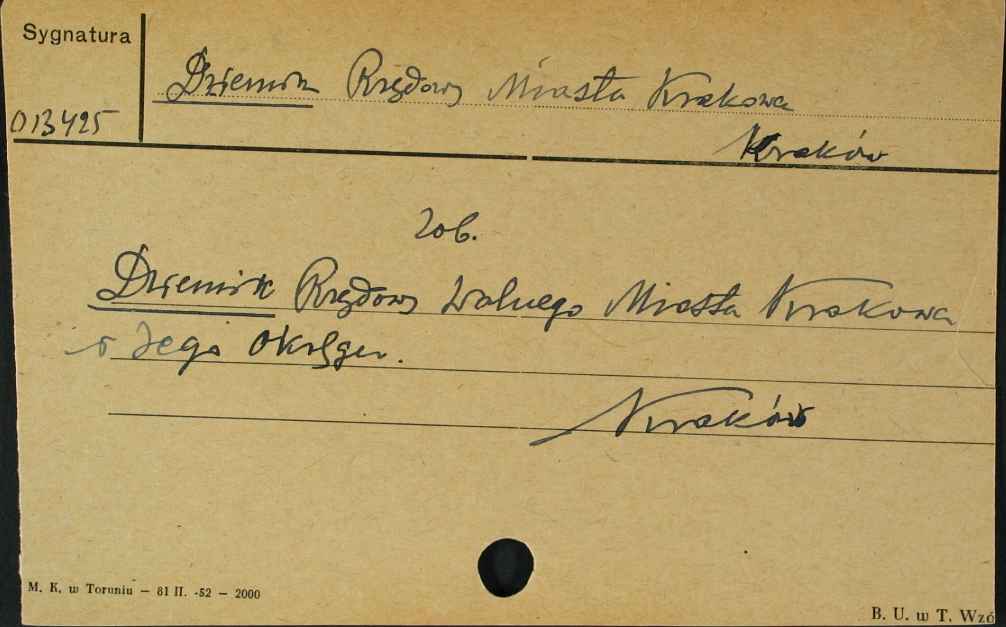 Sygnatura
Dziennik Rządowy Miasta Krakowa
013425
Kraków
Zob.
Dziennik Rządowy Wolnego Miasta Krakowa
i Jego Okręgu.
Kraków
M. K. w Toruniu — 81 II. -52 — 2000
B. U. w T. Wzó